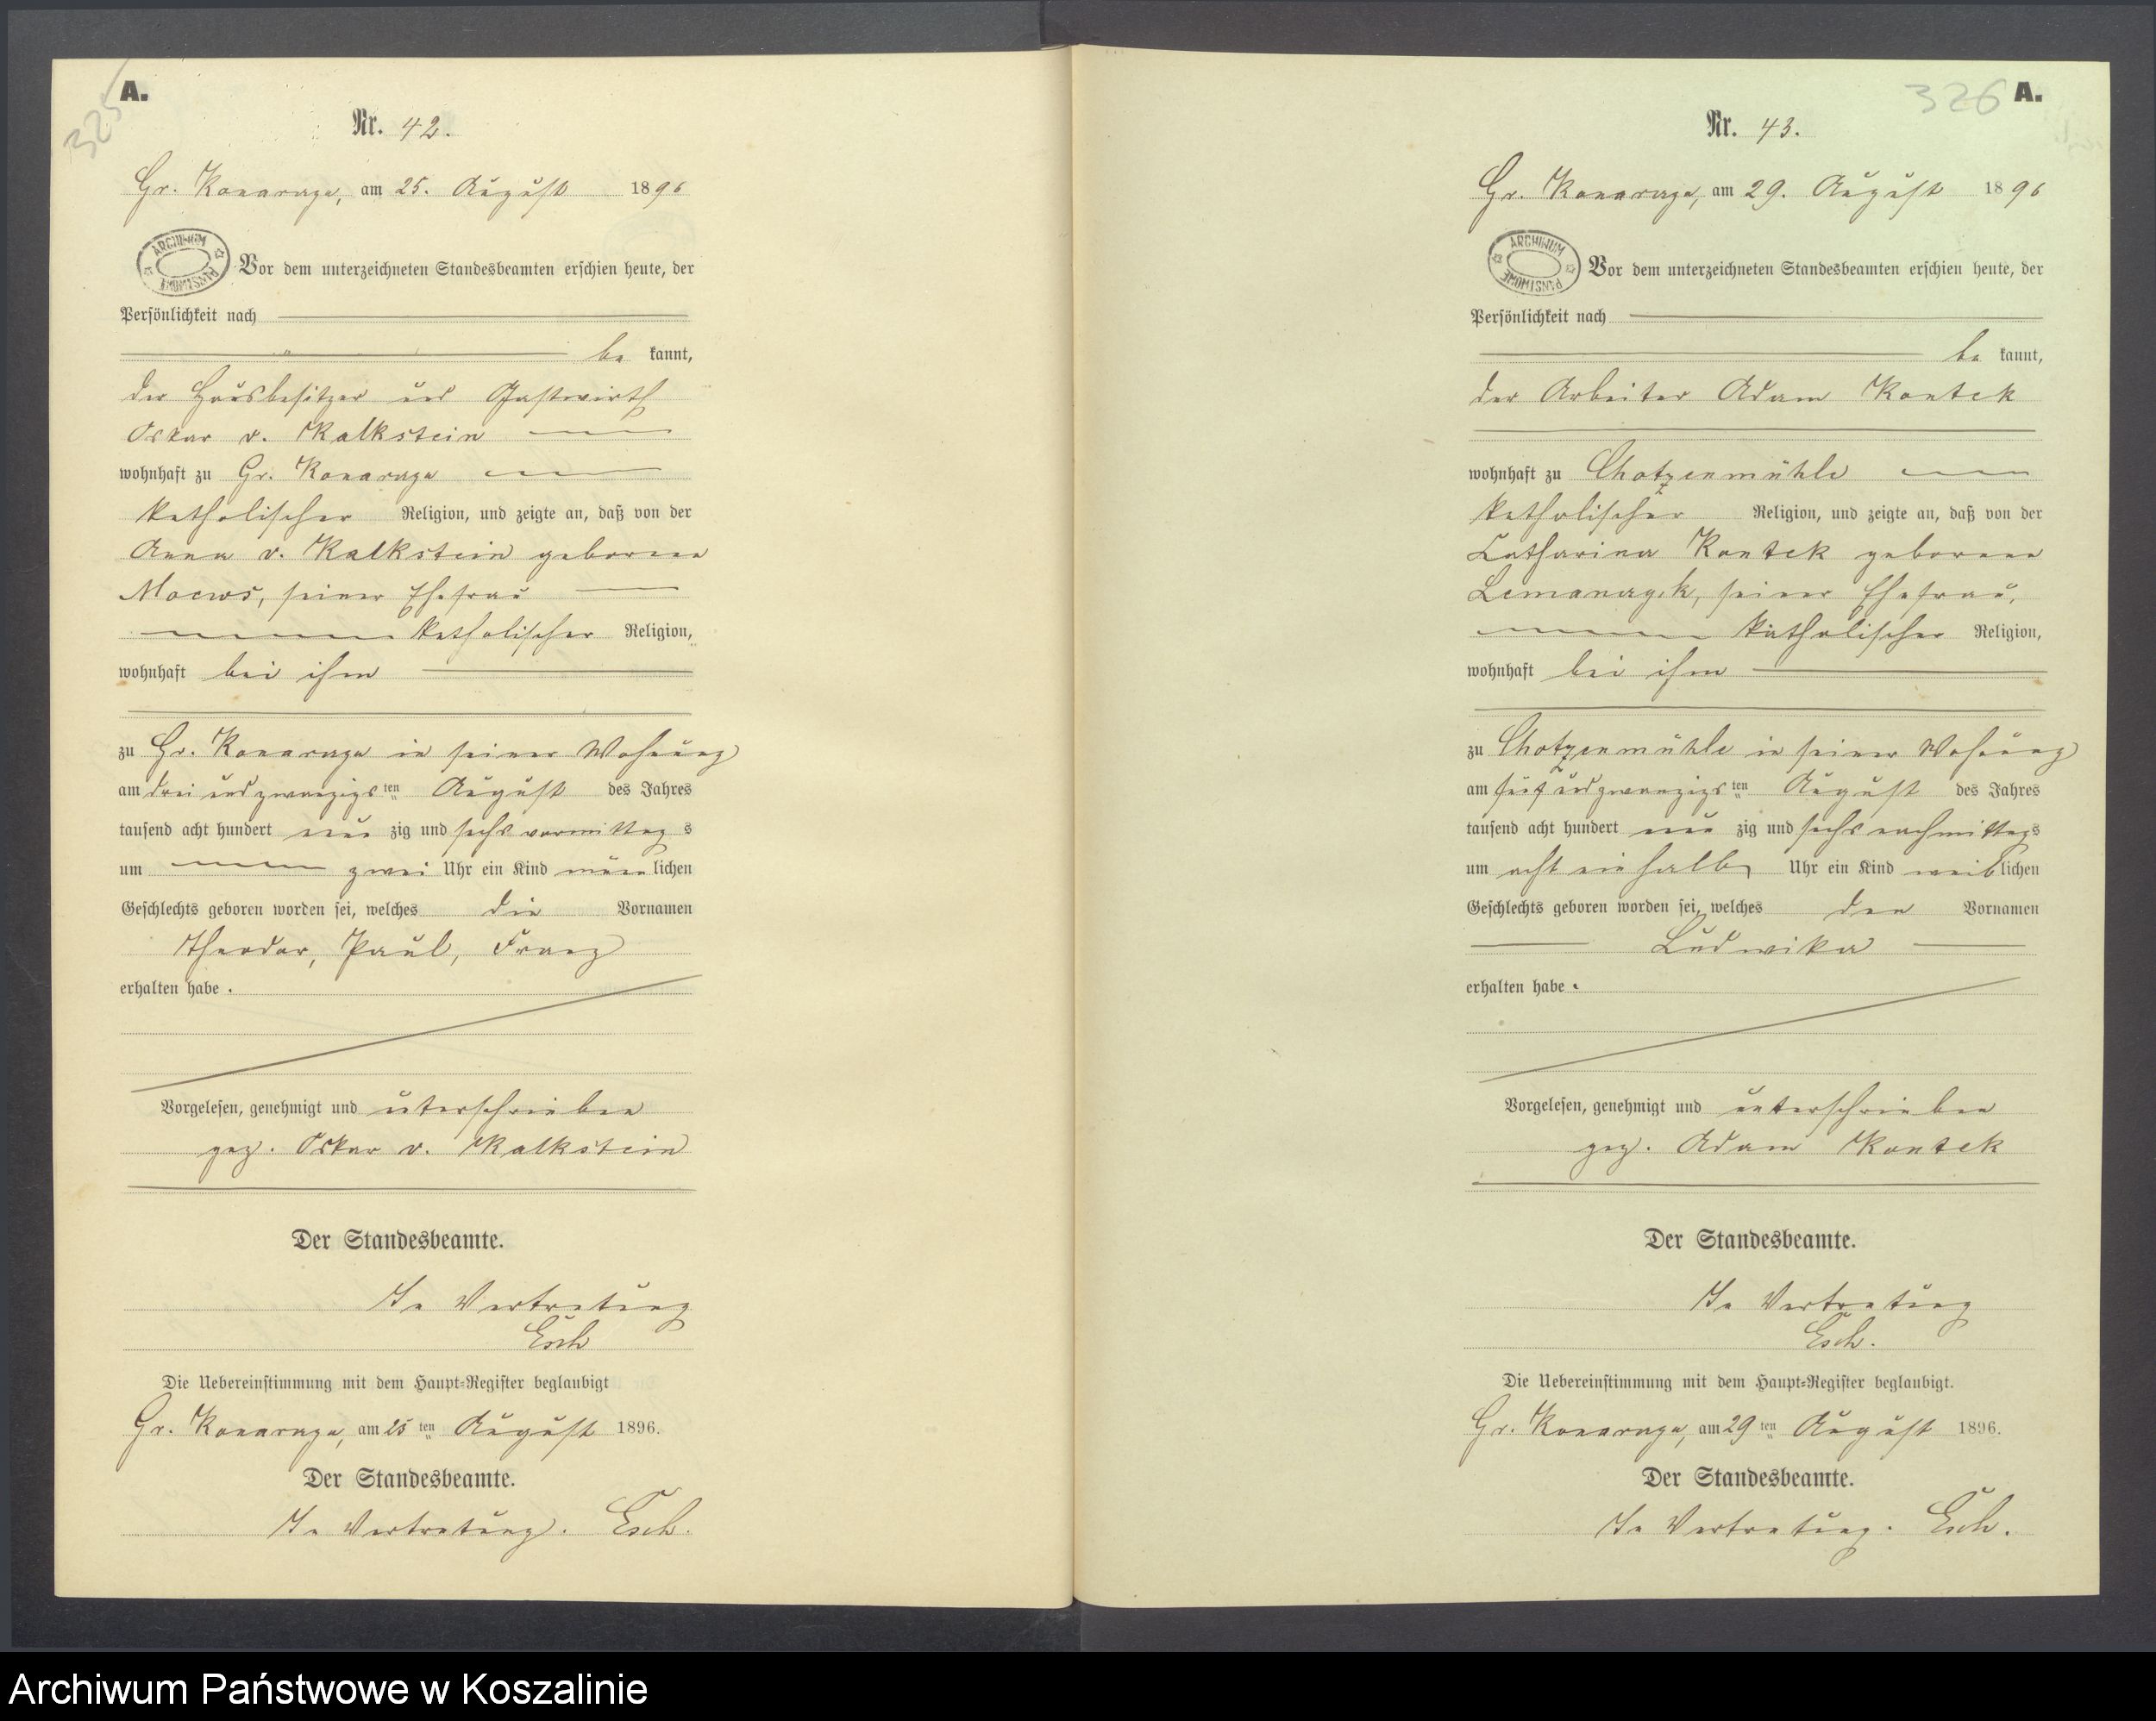 325
A.
Nr. 42.
Gr. Konarczyn, am 25. August 1896
ARCHIWUM PAŃSTWOWE
Vor dem unterzeichneten Standesbeamten erschien heute, der
Persönlichkeit nach
be kannt,
der Hausbesitzer und Gastwirth
Oskar v. Kalkstein
wohnhaft zu Gr. Konarczyn
katholischer Religion, und zeigte an, daß von der
Anna v. Kalkstein geborene
Moews, seiner Ehefrau
katholischer Religion,
wohnhaft bei ihm
zu Gr. Konarczyn in seiner Wohnung
am drei und zwanzigsten August des Jahres
tausend acht hundert neun zig und sechs vormittag s
um zwei Uhr ein Kind männ lichen
Geschlechts geboren worden sei, welches die Vornamen
Theodor, Paul, Franz
erhalten habe.
Vorgelesen, genehmigt und unterschrieben
gez. Oskar v. Kalkstein
Der Standesbeamte.
In Vertretung
Esch
Die Uebereinstimmung mit dem Haupt-Register beglaubigt
Gr. Konarczyn, am 25 ten August 1896.
Der Standesbeamte.
In Vertretung. Esch.
326 A.
Nr. 43.
Gr. Konarczyn, am 29. August 1896
ARCHIWUM PAŃSTWOWE
Vor dem unterzeichneten Standesbeamten erschien heute, der
Persönlichkeit nach
be kannt,
der Arbeiter Adam Kontek
wohnhaft zu Chotzenmühle
katholischer Religion, und zeigte an, daß von der
Catharina Kontek geborene
seiner Ehefrau,
katholischer Religion,
wohnhaft bei ihm
zu Chotzenmühle in seiner Wohnung
am fünf und zwanzigs ten August des Jahres
tausend acht hundert neun zig und sechs nachmittags
um acht ein halb Uhr ein Kind weib lichen
Geschlechts geboren worden sei, welches den Vornamen
Ludwika
erhalten habe.
Vorgelesen, genehmigt und unterschrieben
gez. Adam Kontek
Der Standesbeamte.
In Vertretung
Esch.
Die Uebereinstimmung mit dem Haupt-Register beglaubigt.
Gr. Konarczyn, am 29 ten August 1896.
Der Standesbeamte.
In Vertretung. Esch.
Archiwum Państwowe w Koszalinie